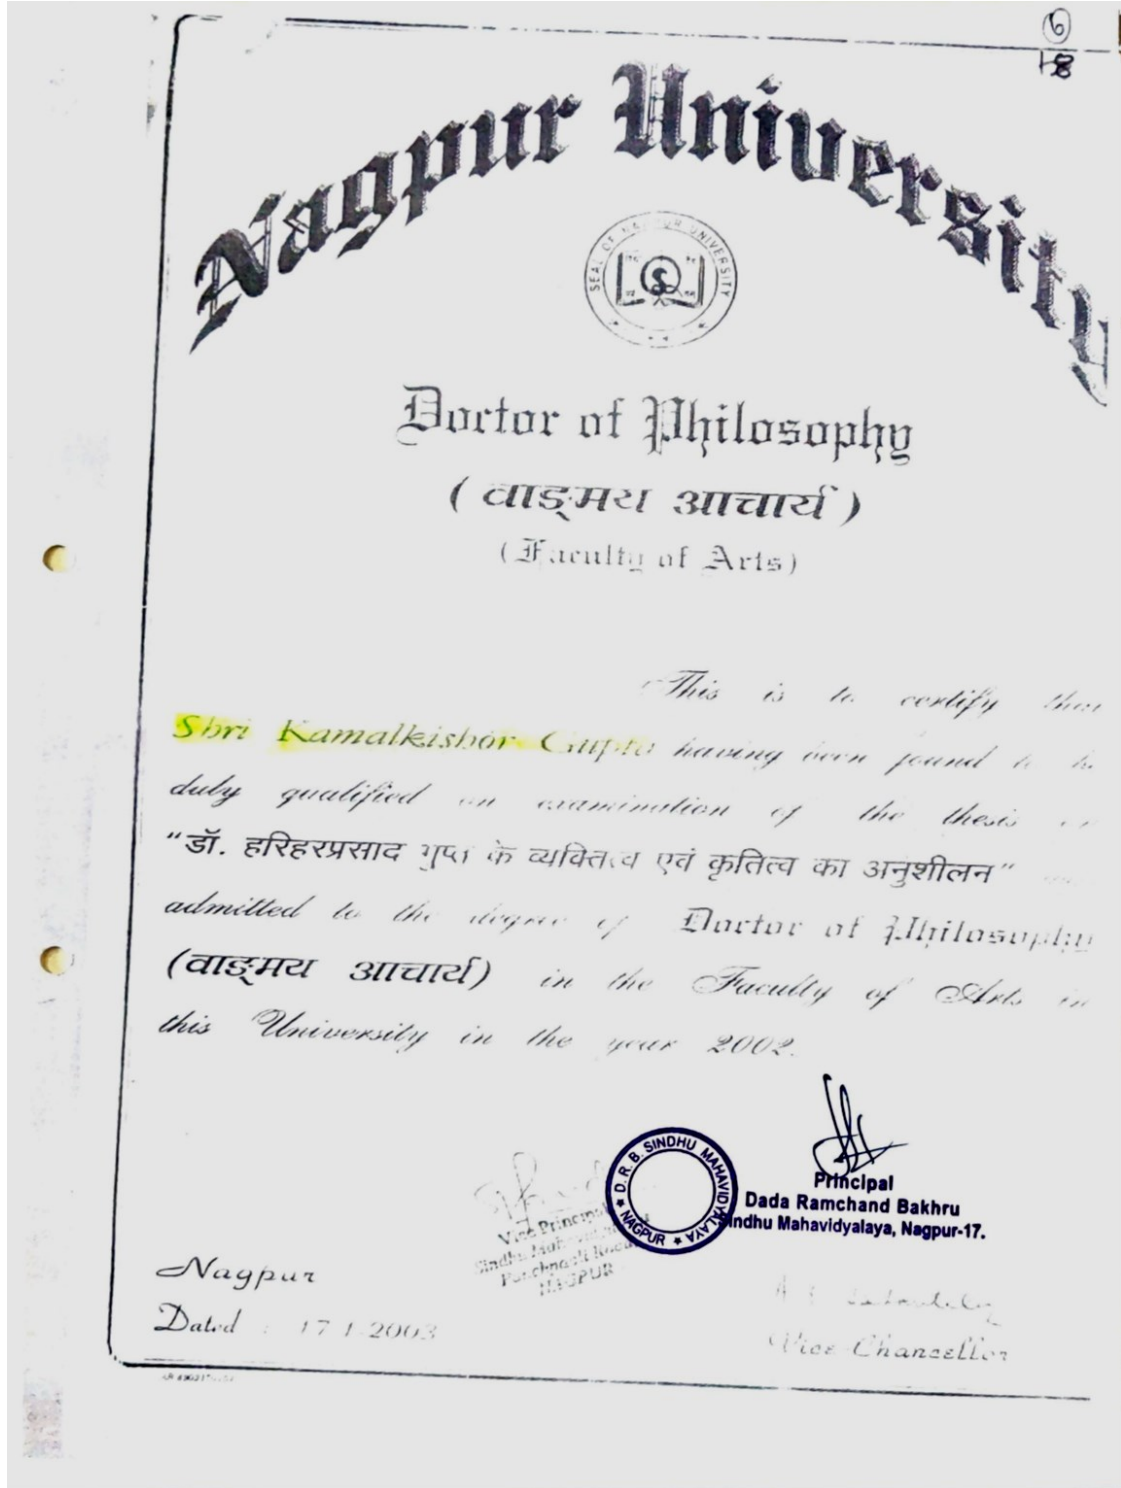 6
Nagpur University
SEAL OF NAGPUR UNIVERSITY
Doctor of Philosophy
( वाङ्मय आचार्य )
(Faculty of Arts)
This is to certify that
Shri Kamalkishor Gupta having been found to be
duly qualified on examination of the thesis on
"डॉ. हरिहरप्रसाद गुप्त के व्यक्तित्व एवं कृतित्व का अनुशीलन"
admitted to the degree of Doctor of Philosophy
(वाङ्मय आचार्य) in the Faculty of Arts in
this University in the year 2002.
D. R. B. SINDHU MAHAVIDYALAYA
NAGPUR
Principal
Dada Ramchand Bakhru
Sindhu Mahavidyalaya, Nagpur-17.
Vice Principal
Sindhu Mahavidyalaya
NAGPUR
Nagpur
Dated : 17-1-2003
Vice-Chancellor